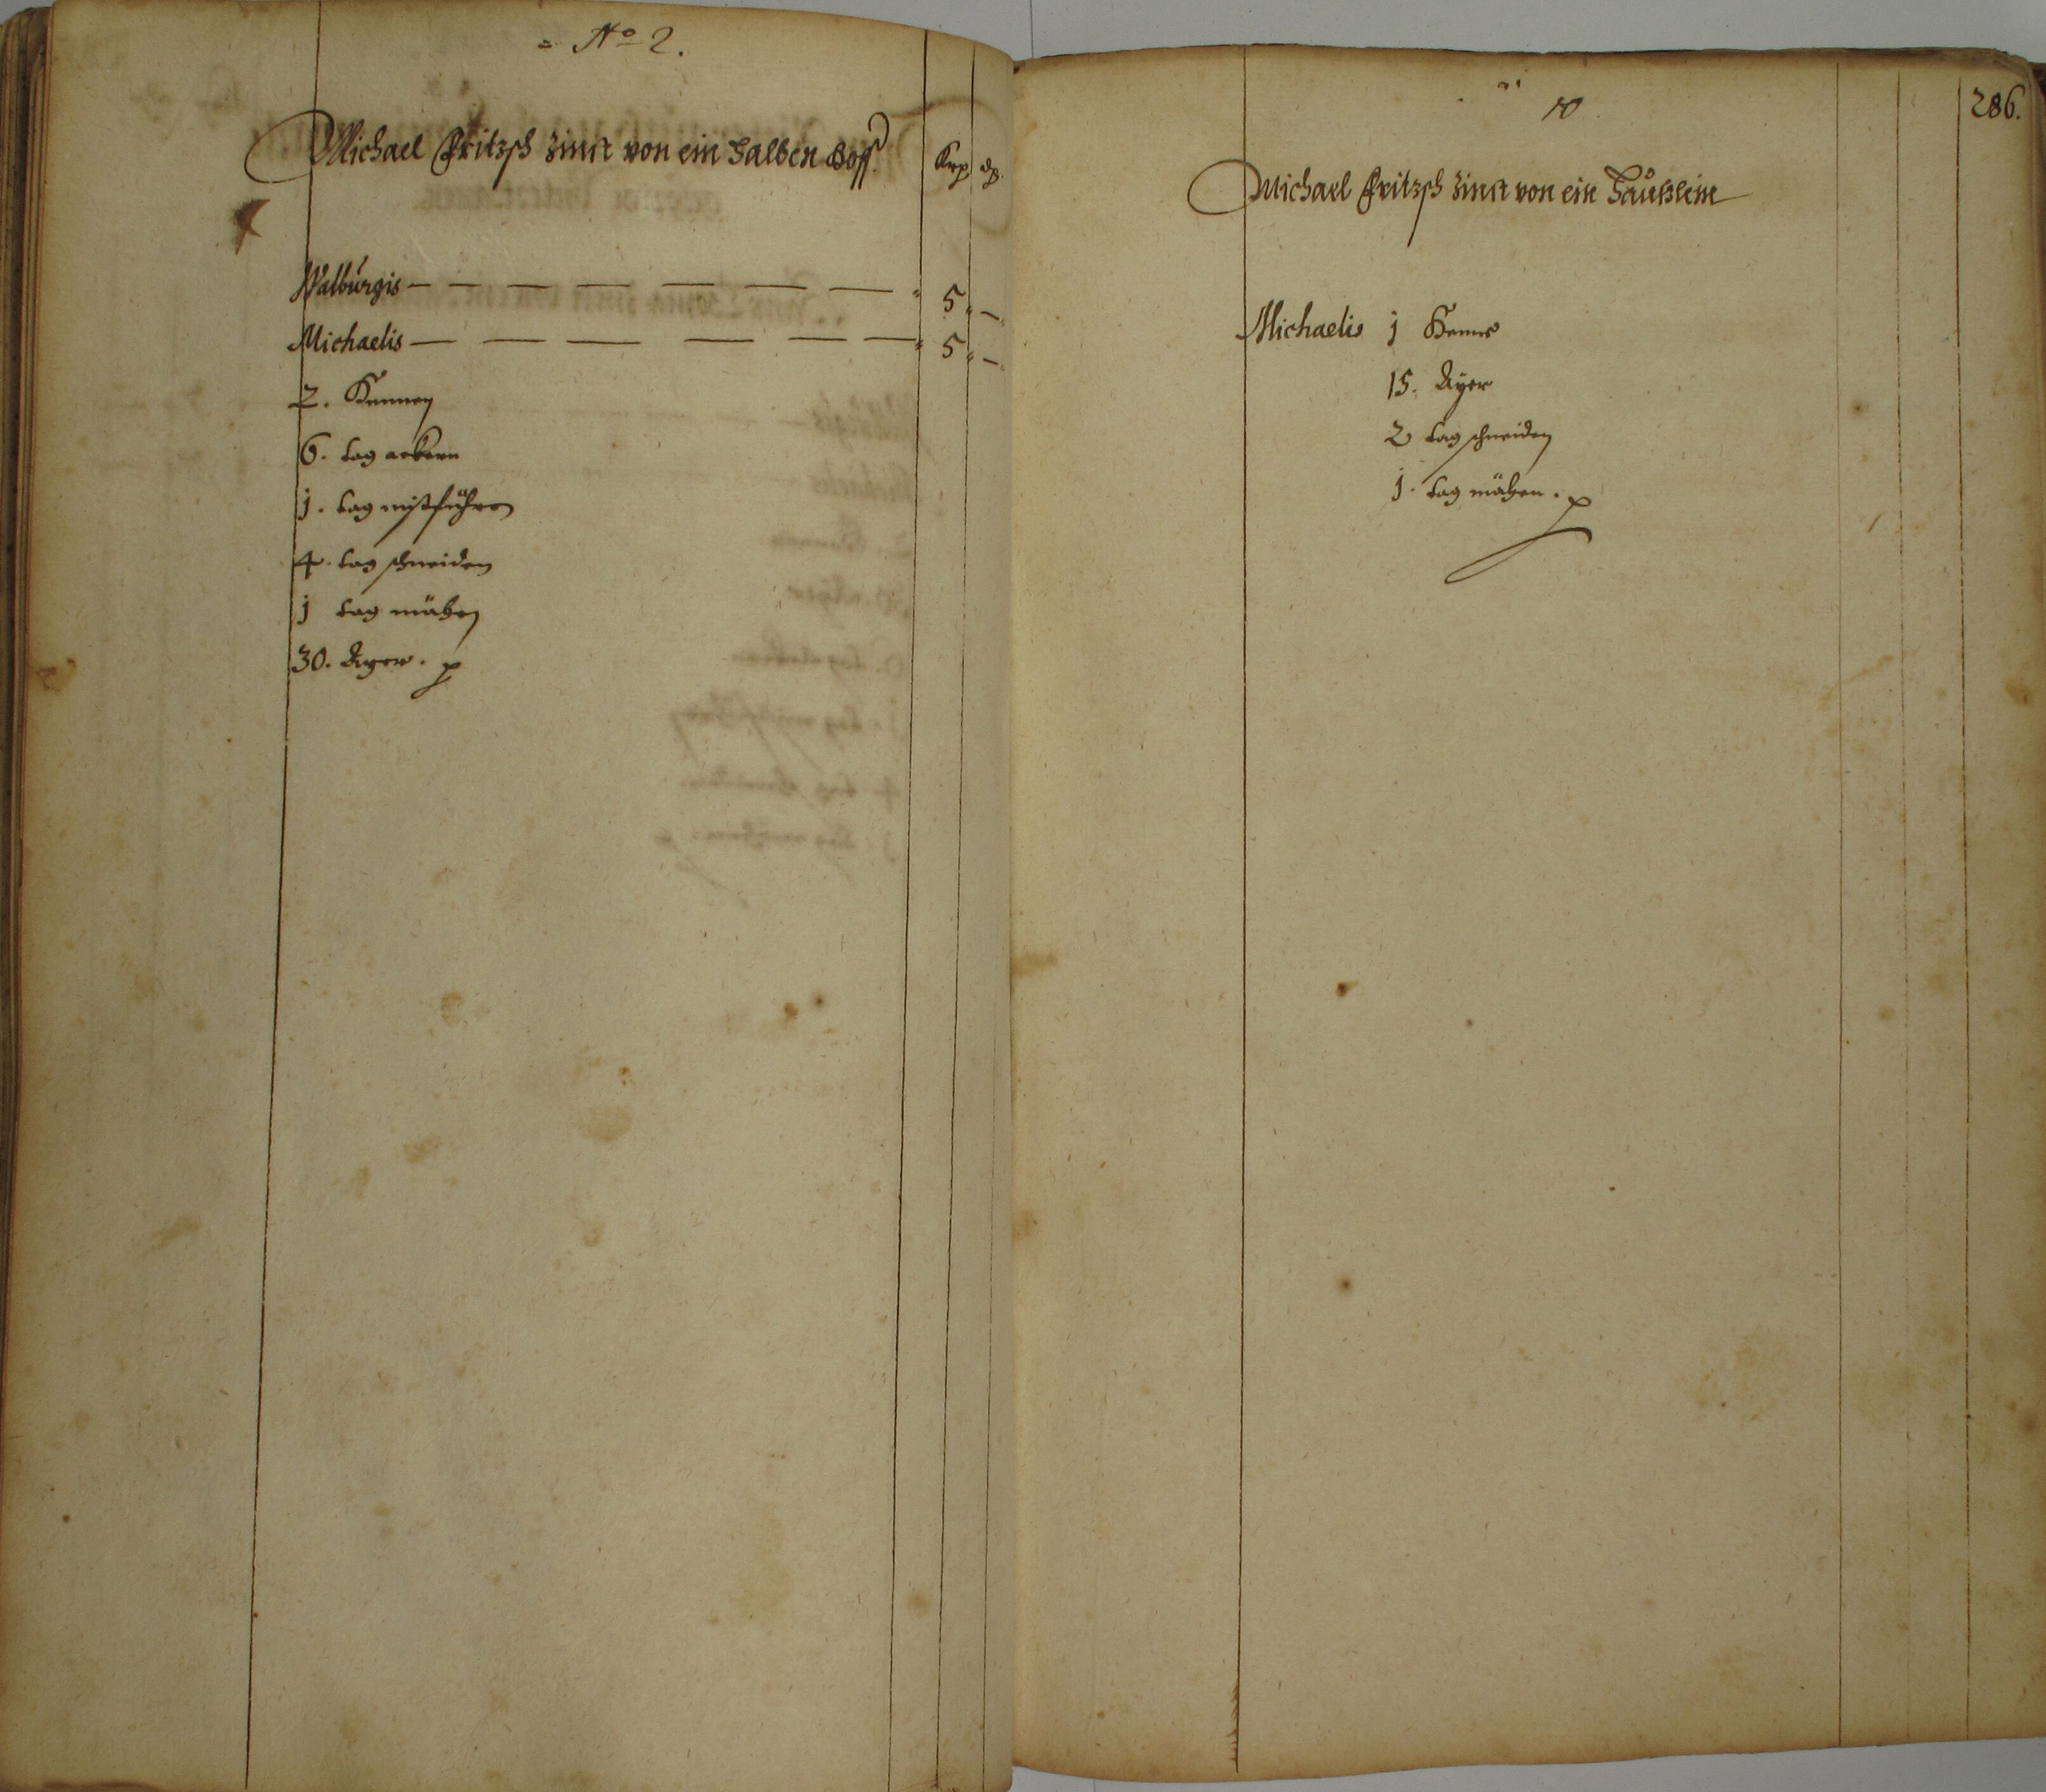 No 2.
Michael Fritzsch Zinst von ein Halben Hoff
Walburgis — — — — — — — 5 —
Michaelis — — — — — — 5 —
2. Hennen
6. tag ackern
j. tag mistführen
4. tag schneiden
j tag mähen
30. Ayer.
286.
Michael Fritzsch Zinst von ein Häußlein
Michaelis j Henne
15. Ayer
2 tag schneiden
j. tag mähen.